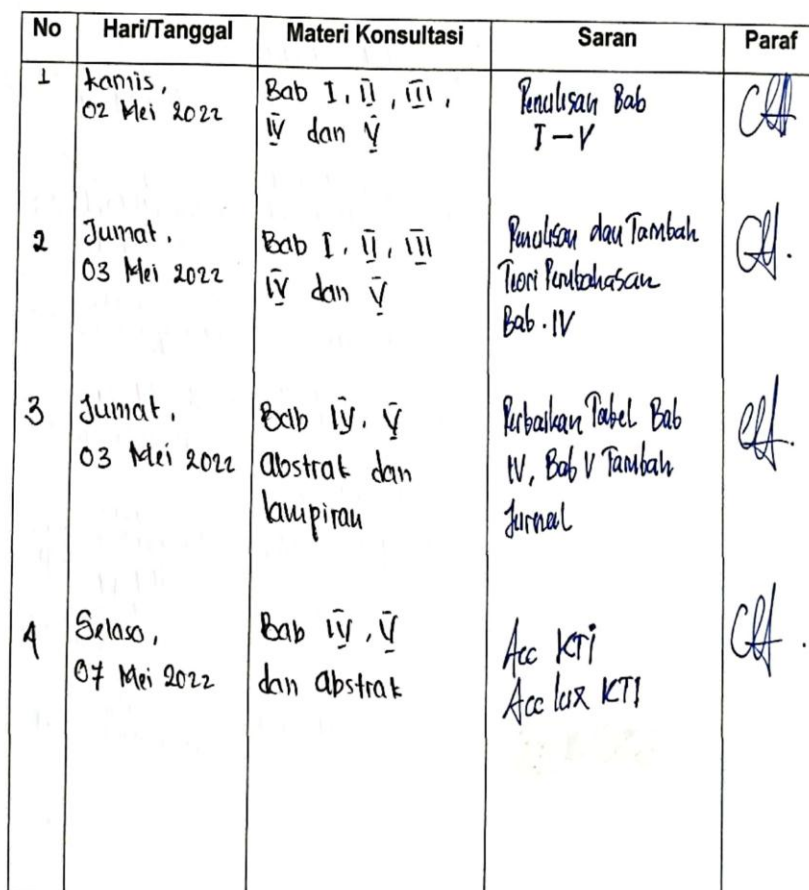 No Hari/Tanggal Materi Konsultasi Saran Paraf
1
Kamis,
02 Mei 2022
Bab I, II, III,
IV dan V
Penulisan Bab
I - V
2
Jumat,
03 Mei 2022
Bab I, II, III
IV dan V
Penulisan dan Tambah
Teori Pembahasan
Bab. IV
3
Jumat,
03 Mei 2022
Bab IV, V
abstrak dan
lampiran
Perbaikan Tabel Bab
IV, Bab V Tambah
Jurnal
4
Selasa,
07 Mei 2022
Bab IV, V
dan abstrak
Acc KTI
Acc lux KTI